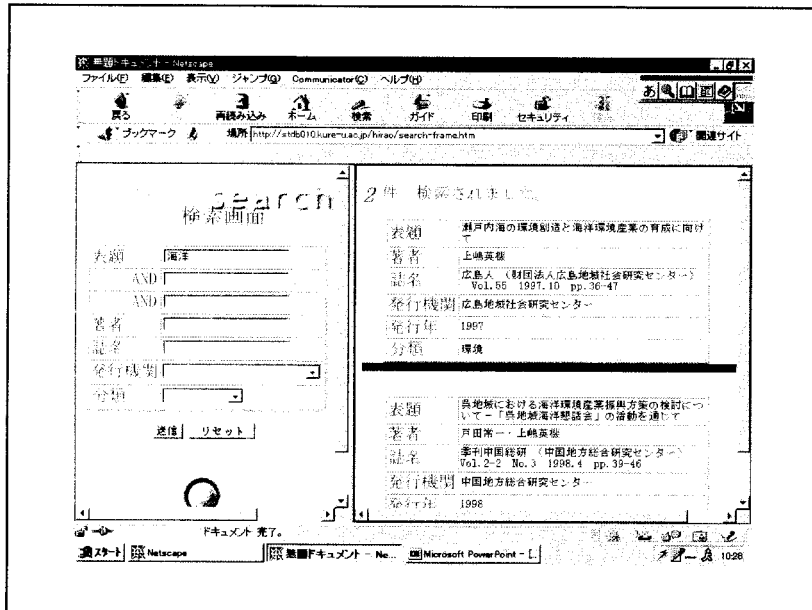 無題ドキュメント - Netscape
ファイル(F) 編集(E) 表示(V) ジャンプ(G) Communicator(C) ヘルプ(H)
戻る 再読み込み ホーム 検索 ガイド 印刷 セキュリティ
ブックマーク 場所 http://stdb010.kure-u.ac.jp/hirao/search-frame.htm 関連サイト
search
検索画面
表題 海洋
AND
AND
著者
誌名
発行機関
分類
送信 リセット
2件 検索されました。
表題 瀬戸内海の環境創造と海洋環境産業の育成に向けて
著者 上嶋英機
誌名 広島人 (財団法人広島地域社会研究センター)
Vol.55 1997.10 pp.36-47
発行機関 広島地域社会研究センター
発行年 1997
分類 環境
表題 呉地域における海洋環境産業振興方策の検討につ
いて-「呉地域海洋懇話会」の活動を通じて
著者 戸田常一・上嶋英機
誌名 季刊中国総研 (中国地方総合研究センター)
Vol.2-2 No.3 1998.4 pp.39-46
発行機関 中国地方総合研究センター
発行年 1998
ドキュメント 完了。
スタート Netscape 無題ドキュメント - Ne... Microsoft PowerPoint - [.. 10:28